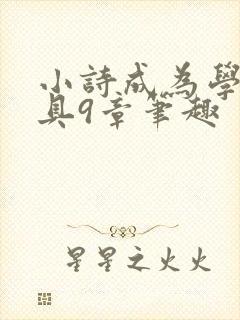 小詩成為學
具9章筆趣
星星之火火